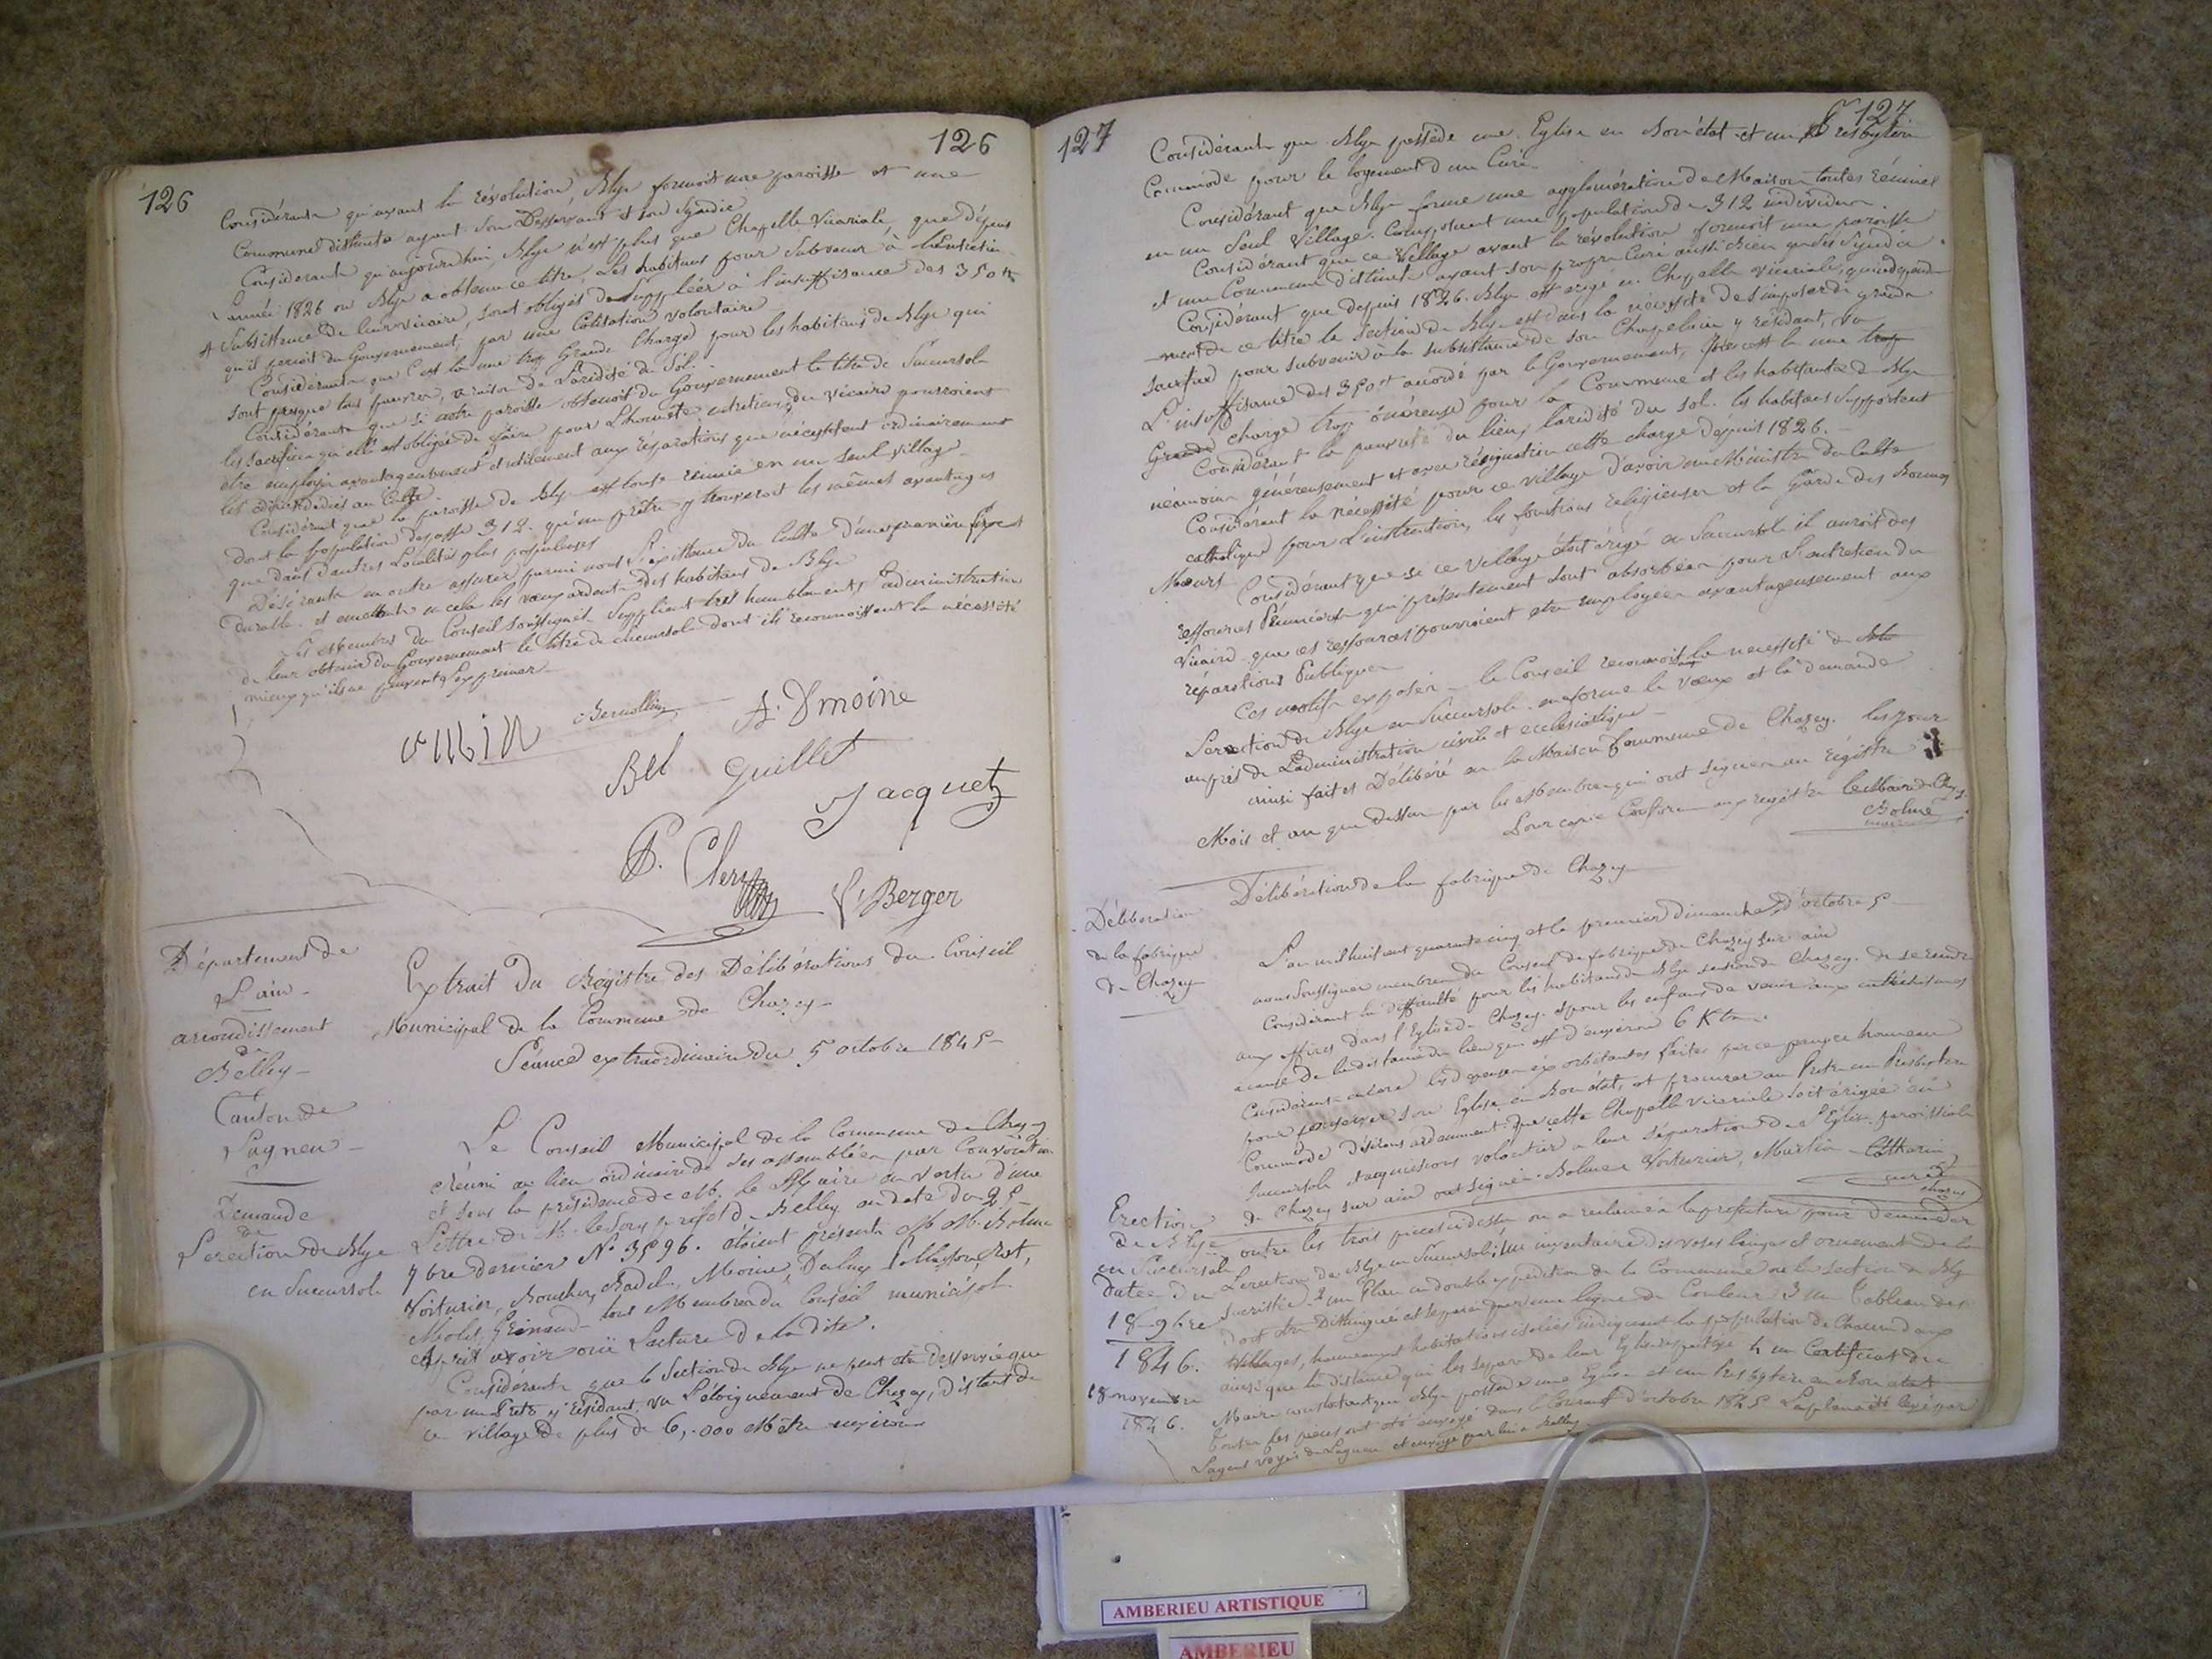 126
126
Considérant qu'avant la révolution, Blye formoit une paroisse et une
Commune distincte ayant son Desservant et son Syndic
Considérant qu'aujourd'hui, Blye n'est plus que Chapelle Vicariale, que depuis
l'année 1826 ou Blye a obtenu ce titre, Les habitans pour Subvenir à l'entretien
et Subsistance de leur vicaire, sont obligés de Suppléer à l'insuffisance des 350 ff
qu'il perçoit du Gouvernement, par une Cotisation volontaire
Considérant que C'est là une trop Grande Charge pour les habitans de Blye qui
sont presque tous pauvres, a raison de l'aridité du Sol.
Considérant que si notre paroisse obtenoit du Gouvernement le titre de Succursale
les Sacrifices qu'elle est obligée de faire pour L'honnete entretien du vicaire pourroient
etre employés avantageusement et utilement aux réparations que nécessitent ordinairement
les objets dediés au Culte.
Considérant que la paroisse de Blye est toute réunie en un seul village
dont la population dépasse 312. qu'un prêtre y trouveroit les mêmes avantages
que dans d'autres Localités plus populeuses
Désirant en outre assurer parmi nous l'existence du Culte d'une manière fixe et
durable. et émettant en cela les vœux ardents des habitans de Blye
Les Membres du Conseil soussignés Supplient très humblement, l'administration
de leur obtenir du Gouvernement le titre de Succursale dont ils reconnoissent la nécessité
mieux qu'ils ne peuvent l'exprimer
Bernollin
Bel Guillet
Jacquet
P. Clerc
Berger
Département de
L'ain
arrondissement
de
Belley
Canton de
Lagneu
Demande
de
L'erection de Blye
en Succursale
Extrait du Régistre des Délibérations du Conseil
Municipal de la Commune de Chazey
Séance extraordinaire du 5 octobre 1845
Le Conseil Municipal de la Commune de Chazey
réuni au lieu ordinaire de ses assemblées par Convocation
et sous la présidence de M. le Maire en vertu d'une
Lettre de M. le Sous préfet de Belley en date du 25
7bre dernier N° 3596. étoient présents M M. Bolme
Voiturier, Boucher, Moine,
tous Membres du Conseil municipal
Après avoir ouï Lecture de la dite.
Considérant que la Section de Blye ne peut etre desservie que
par un Pretre y résidant, vu L'éloignement de Chazey, distant de
ce village de plus de 6,000 Mètre environ
127
127
Considérant que Blye possède une Eglise en Bon état et un Presbytère
Commode pour le logement d'un Curé
Considérant que Blye forme une agglomération de Maison toutes réunies
en un Seul Village. Composant une population de 312 individus.
Considérant que ce Village avant la révolution formoit une paroisse
et une Commune distincte ayant son propre Curé aussi bien que Ses Syndic.
Considérant que depuis 1826. Blye est érigé en Chapelle vicariale, qu'independa
ment de ce titre la section de Blye est dans la nécessité de s'imposer de grands
sacrifices pour subvenir à la subsistance de son Chapelain y résidant, vu
L'insuffisance des 350 ff accordé par le Gouvernement, que c'est là une trop
Grande charge trop onéreuse pour la Commune et les habitants de Blye
Considérant la pauvreté du lieu, l'aridité du sol. les habitans Supportent
néamoins généreusement et avec résignation cette charge depuis 1826.
Considérant la nécessité pour ce village d'avoir un Ministre du Culte
catholique pour L'instruction, les fonctions religieuses et la Garde des Bonnes
Mœurs
Considérant que si ce Village étoit érigé en Succursale il auroit des
ressources Pécuniaires qui présentement sont absorbées pour l'entretien du
Vicaire que ces ressources pourroient etre employées avantageusement aux
réparations Publiques
Ces motifs exposés le Conseil reconnoit la nécessité de
L'erection de Blye en Succursale. en forme le vœux et la demande
auprès de L'administration civile et ecclésiastique
ainsi fait et Délibéré en la Maison Commune de Chazey. les jour
Mois et an que dessus par les Membres qui ont signés au régistre
Pour copie Conforme au registre le Maire de Chazey
Bolme
Délibération de la fabrique de Chazey
Déliberation
de la fabrique
de Chazey
L'an mil huit cent quarante cinq et le premier dimanche d'octobre
nous Soussignés membres du Conseil de fabrique de Chazey sur ain
Considérant la difficulté pour les habitans de Blye section de Chazey. de se rendre
aux offices dans l'Eglise de Chazey. et pour les enfans de venir aux cathechismes
a cause de la distance du lieu qui est d'environ 6 K
Considérant encore les depenses exorbitantes faites par ce pauvre hameau
pour conserver son Eglise en Bon état, et procurer au Pretre un Presbytere
Commode Désirons ardemment que cette Chapelle vicariale soit érigée en
Succursale et acquiesçons volontier a leur séparation de l'Eglise paroissiale
de Chazey sur ain ont signés Bolme Voiturier, Martin
curé
chazey
Erection
de Blye
en Succursale
Datée du
18 9bre
1846.
18 novembre
1846.
outre les trois pieces ci dessus on a reclamé a la prefecture pour demander
L'erection de Blye en Succursale, un inventaire des vases linges et ornement de la
sacristie. 2 un Plan en double expedition de la Commune ou la section de Blye
doit etre Distinguée et separée par une ligne de Couleur 3 un Tableau des
Villages, hameaux et habitations isolées indiquant la population de Chacun d'eux
ainsi que la distance qui les separe de leur Eglise respective 4 un Certificat du
Maire constatant que Blye possede une Eglise et un Presbytere en Bon etat
Toutes ces pieces ont été envoyé dans le Courant d'octobre 1845 Le plan a été levé par
L'agent voyer de Lagneu et envoyé par lui a Belley.
AMBERIEU ARTISTIQUE
AMBERIEU